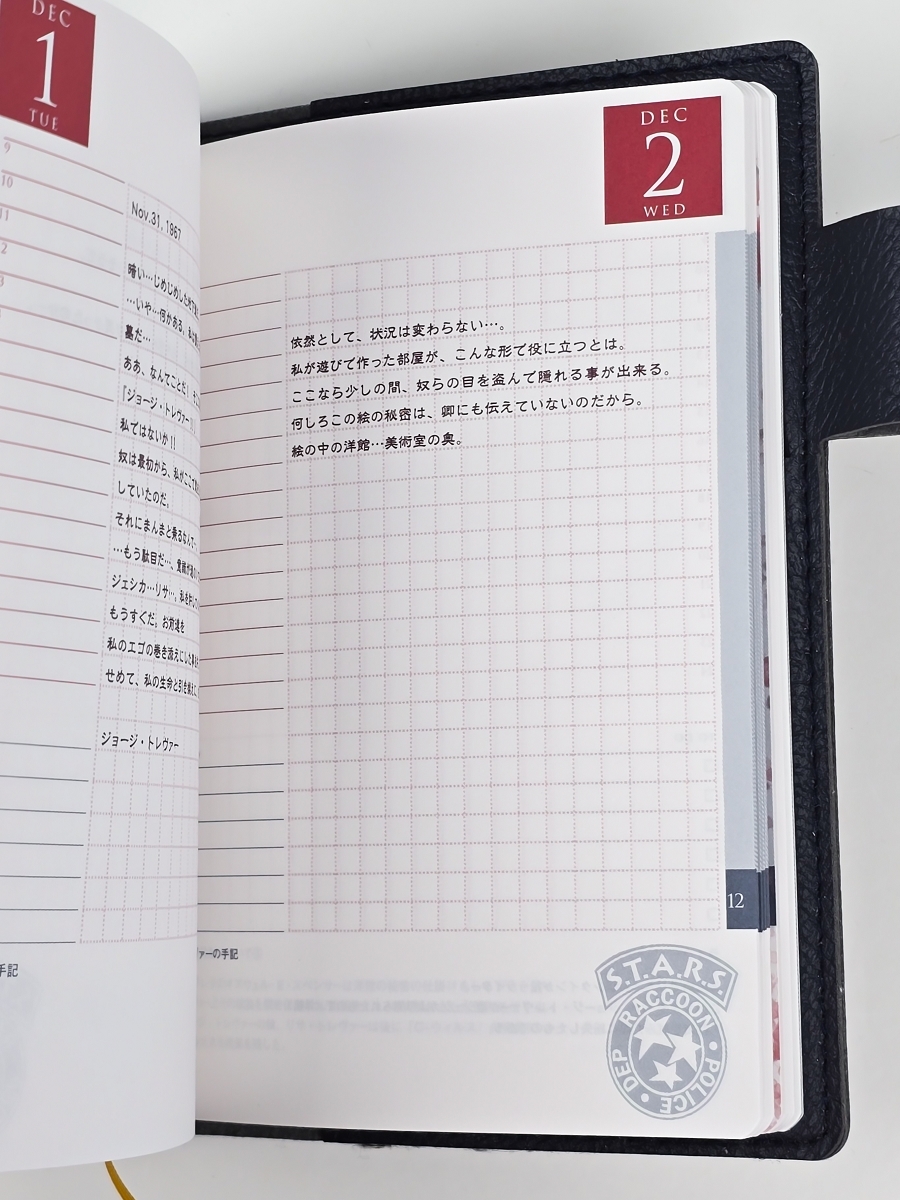 DEC
1
TUE
9
10
11
2
3
Nov.31, 1967
暗い…じめじめした
…いや…何かある。
墓だ…
ああ、なんてことだ!
『ジョージ・トレヴァー
私ではないか!!
奴は最初から、私がここで
していたのだ。
それにまんまと乗るなんて
…もう駄目だ…、
ジェシカ…リサ…、私を
もうすぐだ。お前達を
私のエゴの巻き添えにした
せめて、私の生命と引き換えに
ジョージ・トレヴァー
手記
DEC
2
WED
依然として、状況は変わらない…。
私が遊びで作った部屋が、こんな形で役に立つとは。
ここなら少しの間、奴らの目を盗んで隠れる事が出来る。
何しろこの絵の秘密は、卿にも伝えていないのだから。
絵の中の洋館…美術室の奥。
12
ァーの手記
S.T.A.R.S.
RACCOON
POLICE
DEP